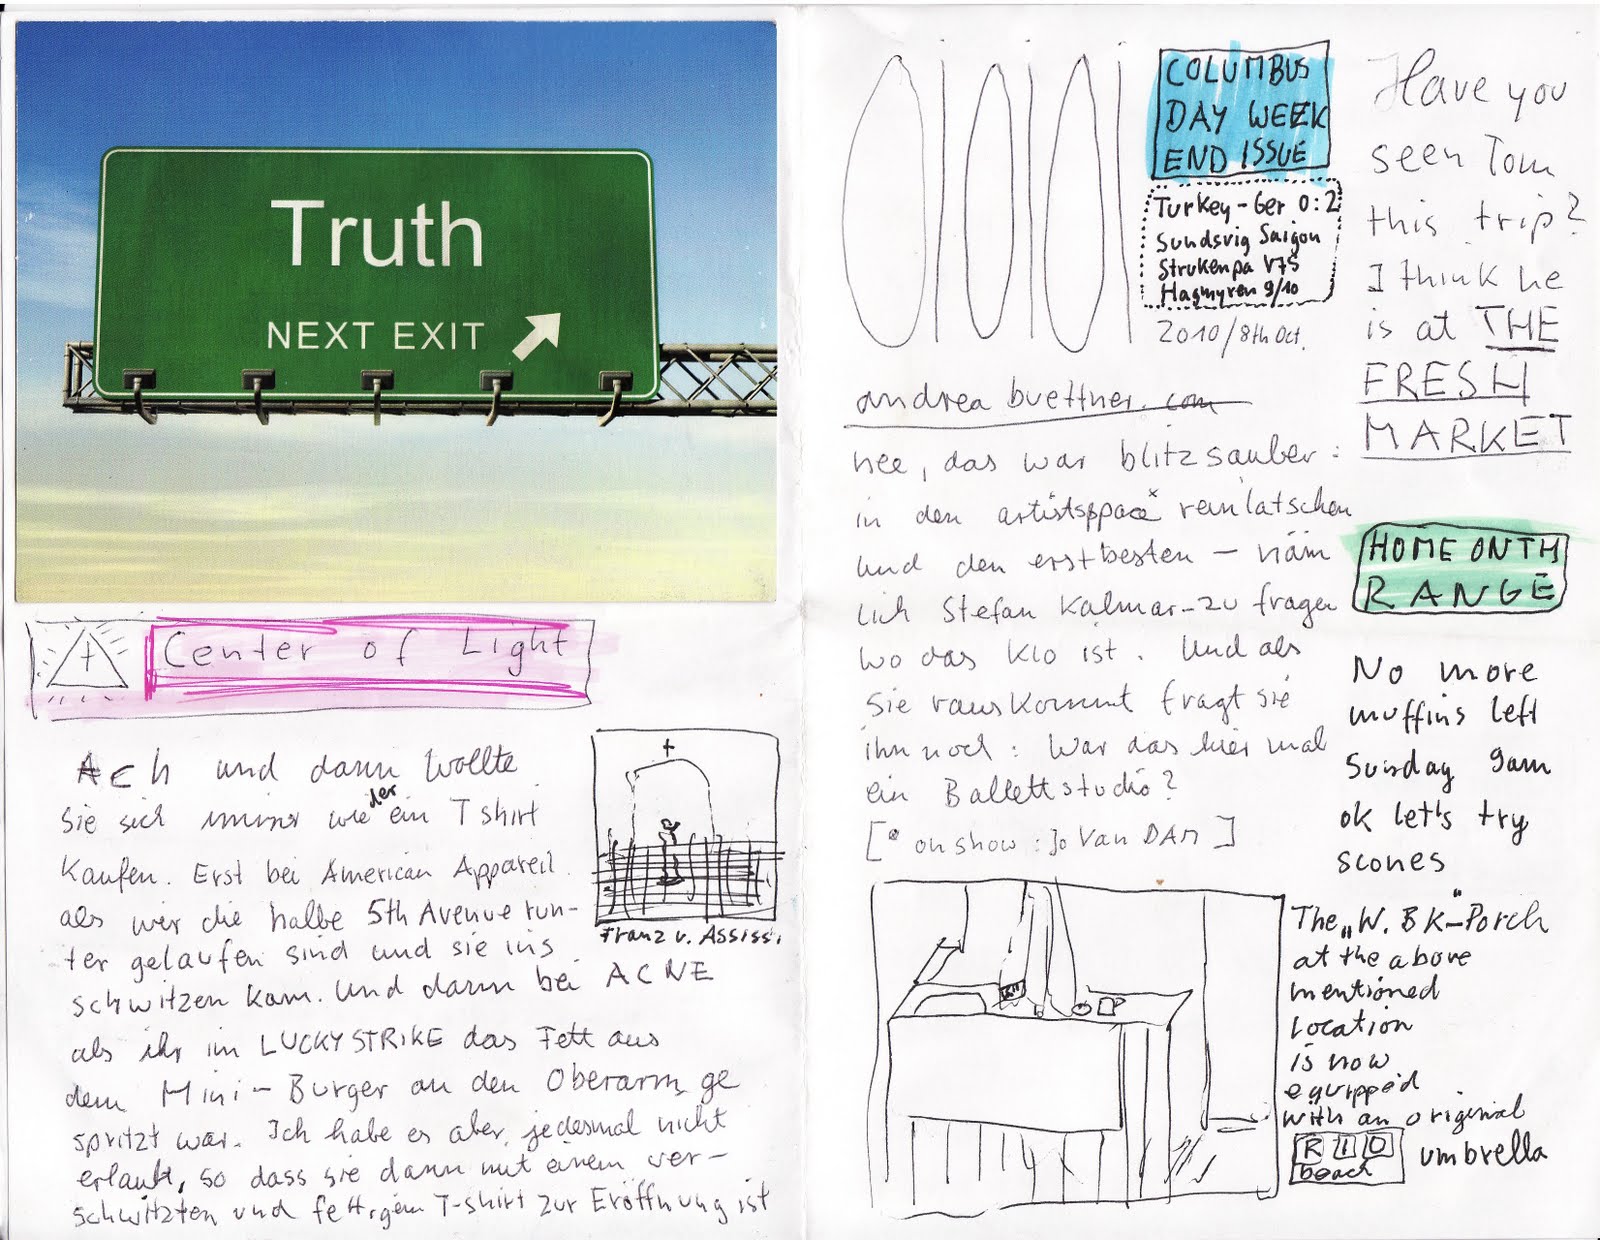 Truth
NEXT EXIT
Center of Light
Ach und dann wollte
Sie sich immer wieder ein T shirt
kaufen. Erst bei American Apparel.
als wir die halbe 5th Avenue run-
ter gelaufen sind und sie ins
schwitzen kam. Und dann bei ACNE
als ihr im LUCKY STRIKE das Fett aus
dem Mini-Burger an den Oberarm ge
spritzt war. Ich habe es aber jedesmal nicht
erlaubt, so dass sie dann mit einem ver-
schwitzten und fettigem T-shirt zur Eröffnung ist
Franz v. Assissi
COLUMBUS
DAY WEEK
END ISSUE
Turkey-Ger 0:2
Sundsvig Saigon
Strukenpa V75
Hagmyren 9/10
2010/8th Oct.
andrea buettner. com
nee, das war blitzsauber:
in den artistspace* reinlatschen
und den erstbesten – näm
lich Stefan Kalmar-zu fragen
wo das Klo ist. Und als
Sie rauskommt fragt sie
ihn noch: War das hier mal
ein Ballettstudio?
[* on show: Jo Van DAM]
Have you
seen Tom
this trip?
I think he
is at THE
FRESH
MARKET
HOME ON TH
RANGE
No more
muffins left
Sunday 9am
ok let's try
scones
The „W. BK"-Porch
at the above
mentioned
location
is now
equipped
with an original
RIO
beach
umbrella